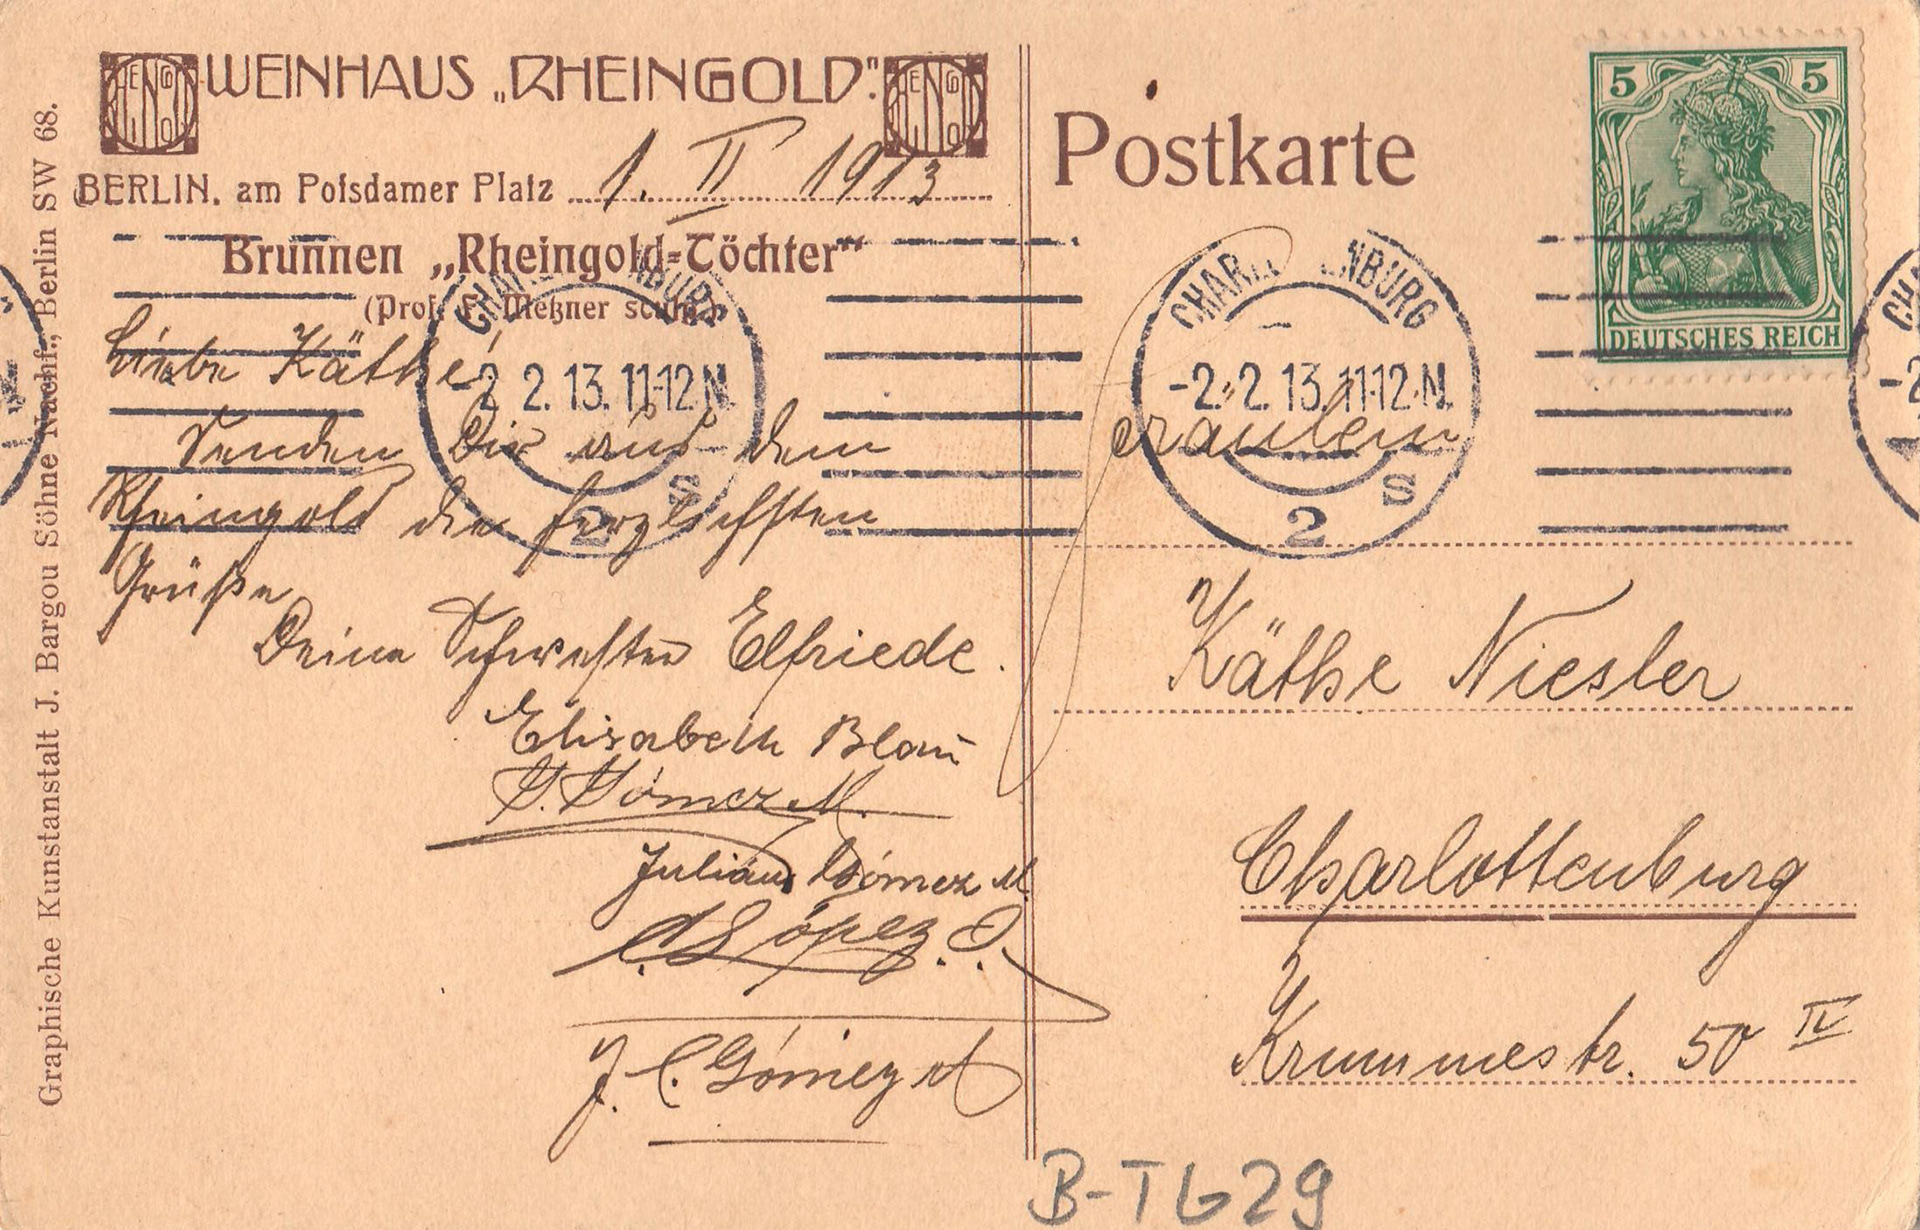 WEINHAUS „RHEINGOLD".
BERLIN. am Potsdamer Platz 1. II 1913
Brunnen „Rheingold-Töchter"
(Prof. F. Meßner sculps.)
Liebe Käthe!
Senden Dir aus dem
Rheingold die herzlichsten
Grüße
Deine Schwester Elfriede.
Elisabeth Blau
Gómez M.
Julián Gómez M.
C. López O.
J. C. Gómez M
Graphische Kunstanstalt J. Bargou Söhne Nachf., Berlin SW 68.
Postkarte
5 5
DEUTSCHES REICH
CHAR NBURG
-2 2.13.11-12 N.
2 S
CHAR NBURG
-2. 2.13.11-12.N.
2 S
CHA
-2
Fräulein
Käthe Niesler
Charlottenburg
Krummestr. 50 IV
B-TG29